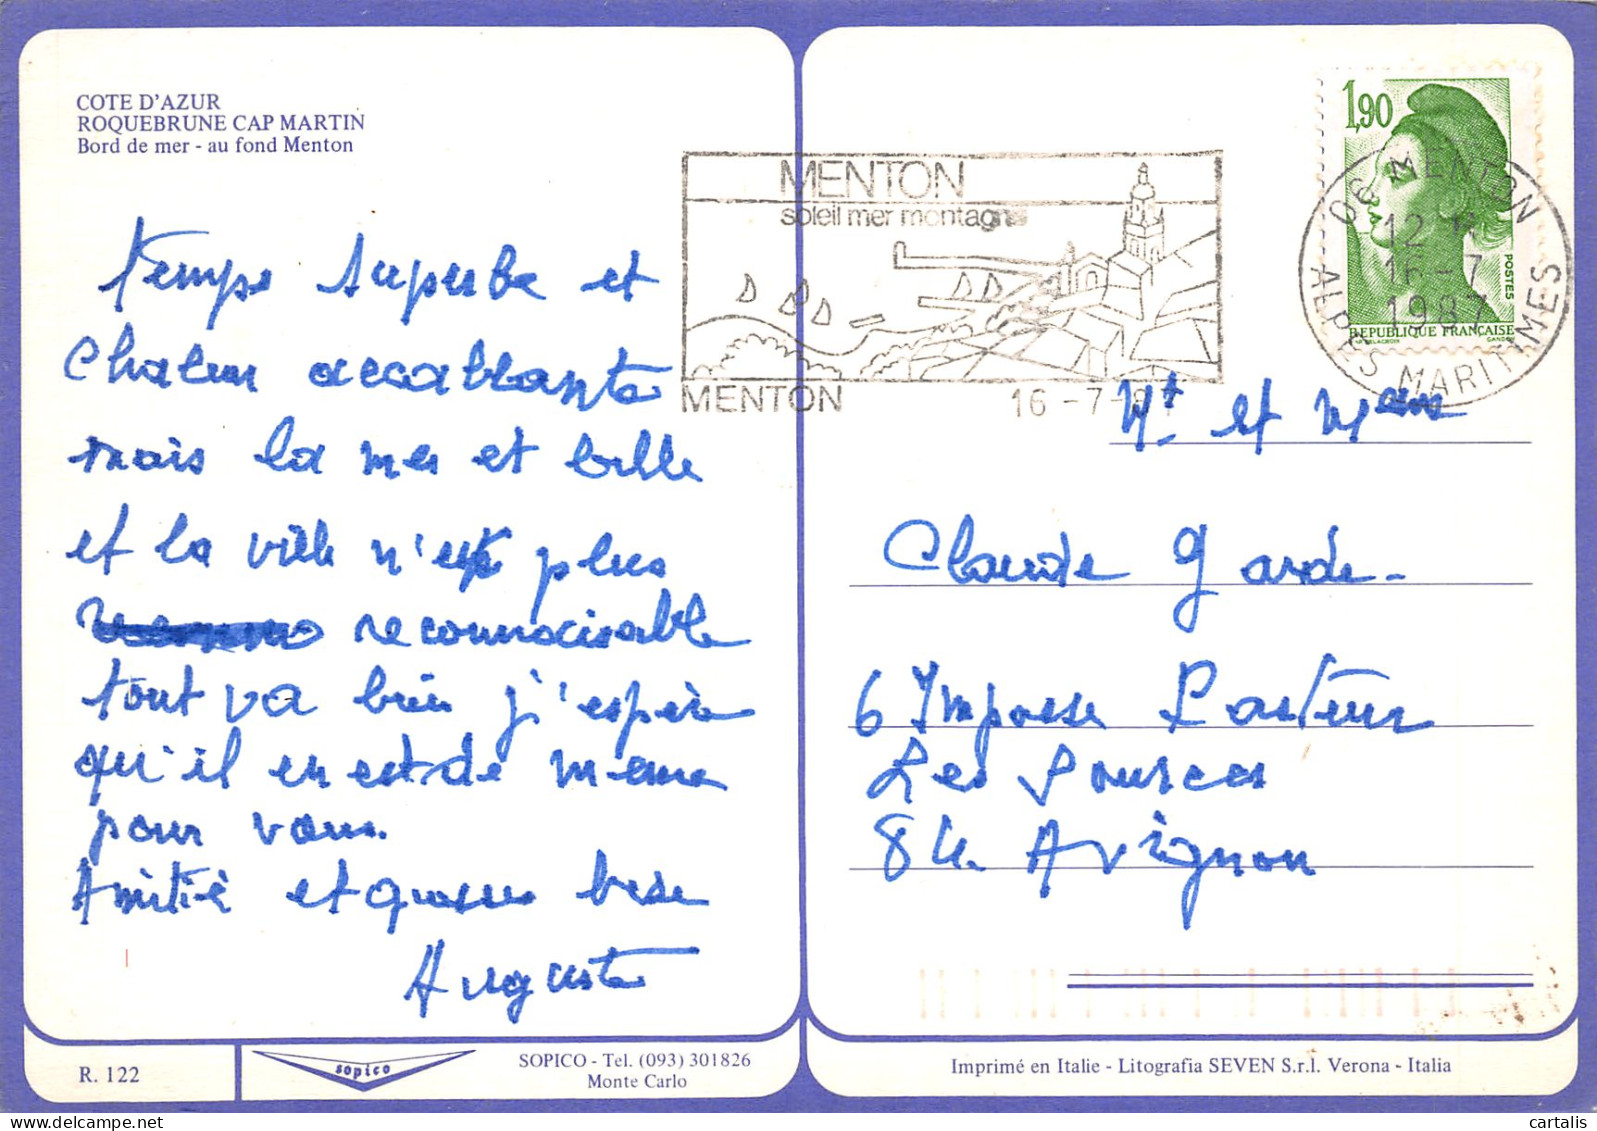 COTE D'AZUR
ROQUEBRUNE CAP MARTIN
Bord de mer - au fond Menton
Temps superbe et
Chaleur accablante
mais la mer et belle
et la ville n'est plus
reconnaissable
tout va bien j'espère
qu'il en est de meme
pour vous.
Amitié et grosses bise
Auguste
R. 122
sopico
SOPICO - Tel. (093) 301826
Monte Carlo
MENTON
soleil mer montagne
MENTON
16 - 7 - 87
1,90
POSTES
REPUBLIQUE FRANÇAISE
AP. DELACROIX
GANDON
06 MENTON
12 H
16 - 7
1987
ALPES MARITIMES
Mr et Mme
Claude Garde -
6 Impasse Pasteur
Les Sources
84 Avignon
Imprimé en Italie - Litografia SEVEN S.r.l. Verona - Italia
cartalis